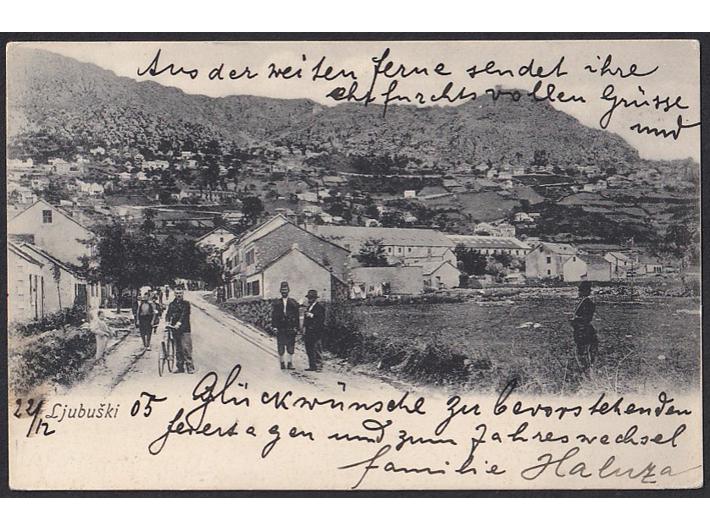 Aus der weiten Ferne sendet ihre
ehrfurchtsvollen Grüsse
und
22/12 Ljubuški 05 Glückwünsche zu bevorstehenden
feiertagen und zum Jahreswechsel
familie Haluza